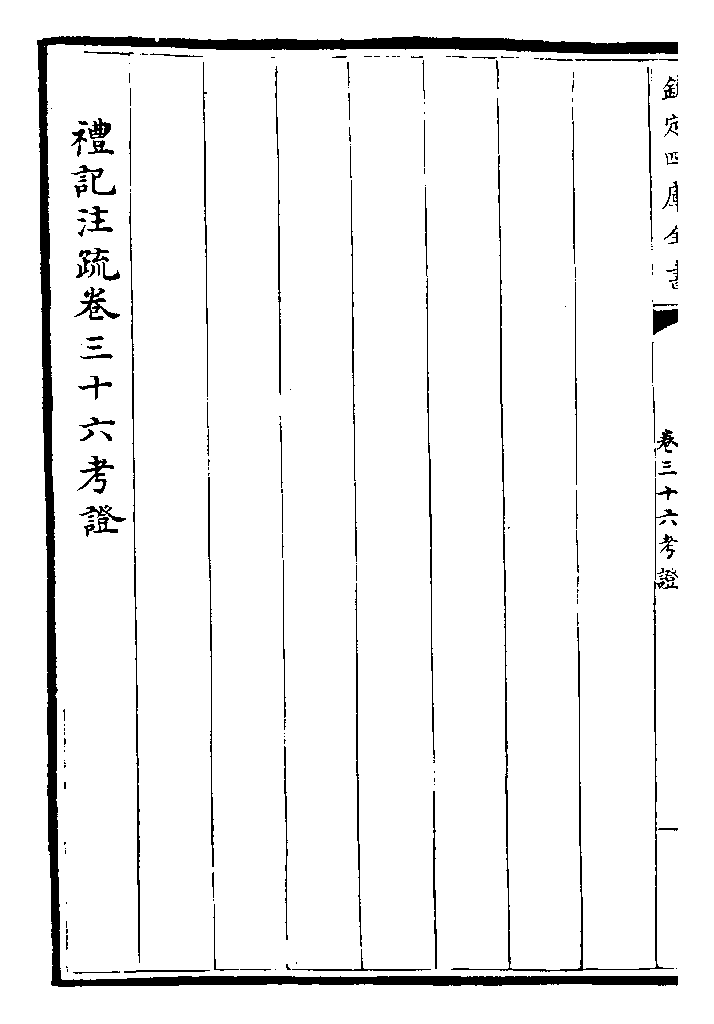 欽定四庫全書
卷三十六考證
禮記注疏卷三十六考證